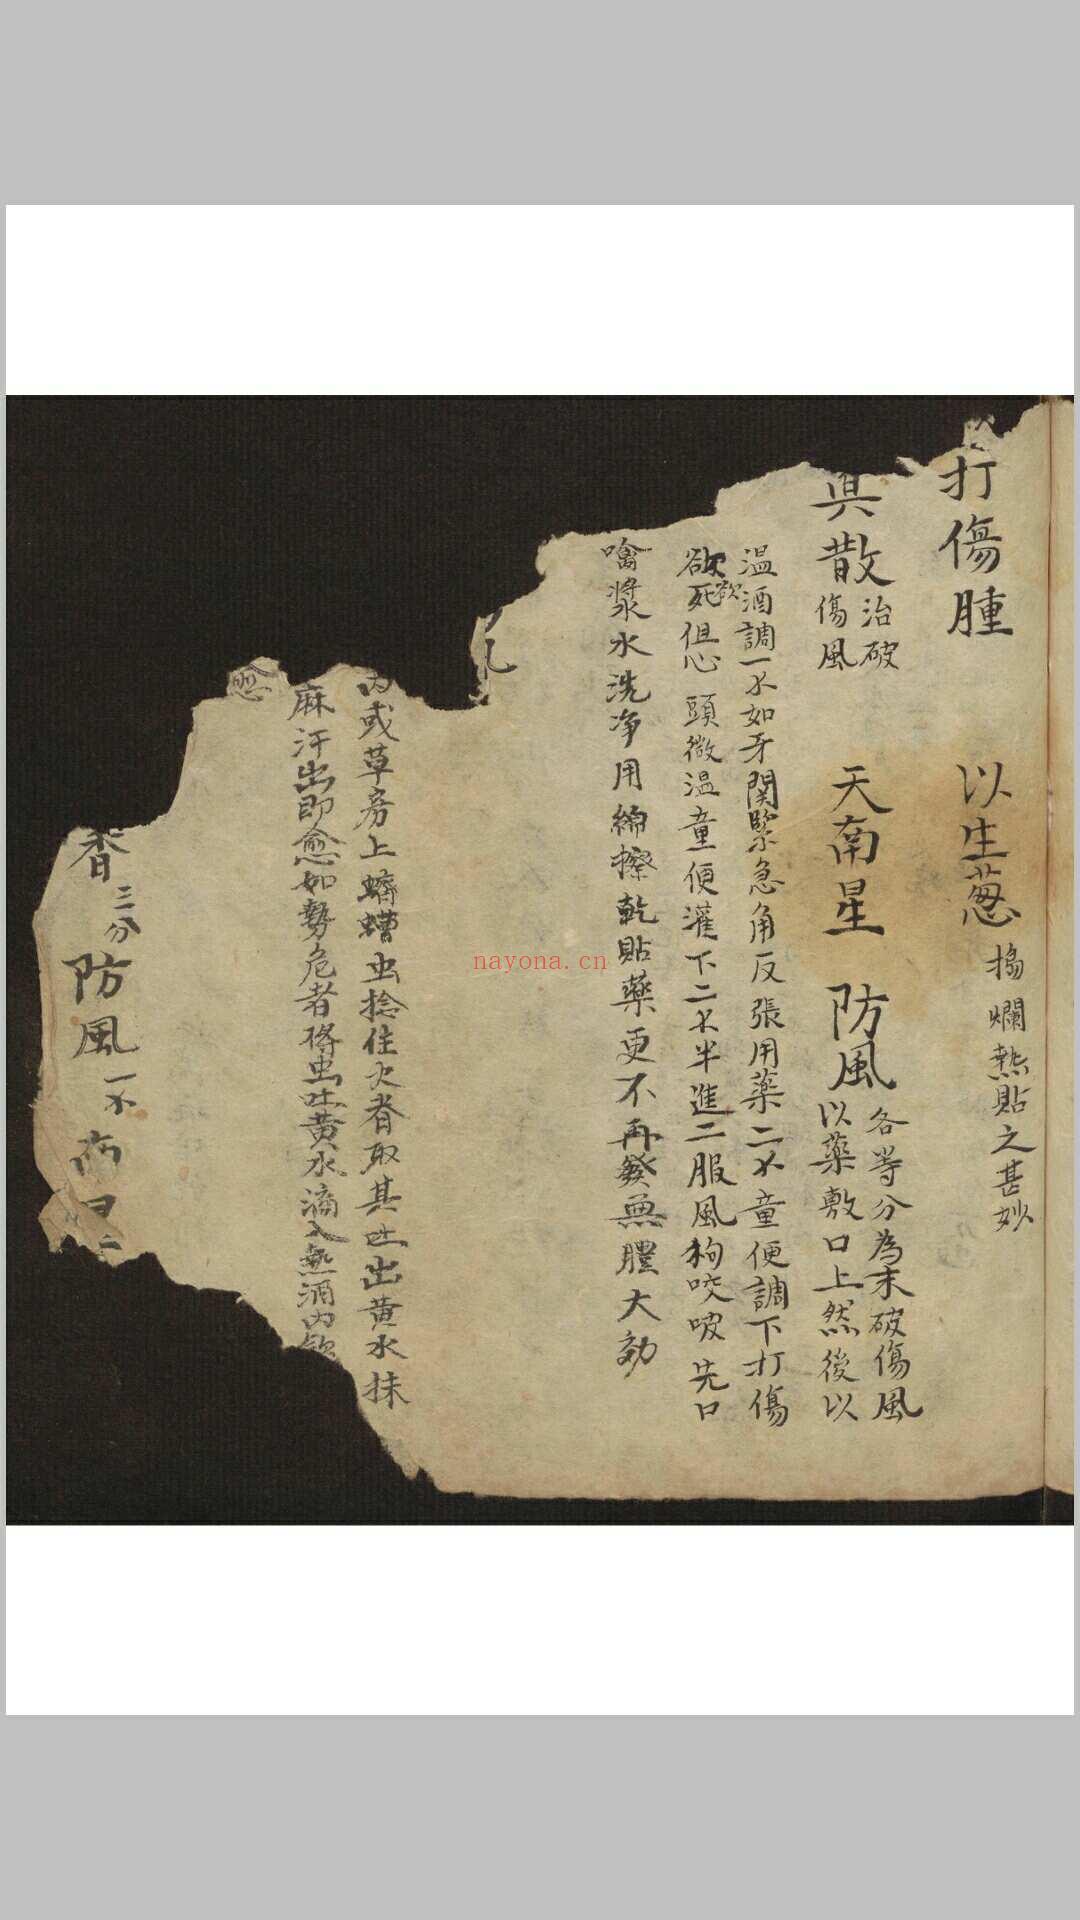 打傷腫 以生葱 搗爛熱貼之甚妙
具散 治破傷風 天南星 防風 各等分為末破傷風
以藥敷口上然後以
温酒調一不如牙関緊急角反張用藥二不童便調下打傷
欲死但心頭微温童便灌下二不半進二服風狗咬破先口
欲
噙漿水洗净用綿擦乾貼藥更不再發無膿大効
内或草房上蠐螬虫捻住火者取其吐出黄水抹
麻汗出即愈如勢危者將虫吐黄水滴入熱酒内飲
愈
香三分防風一不南星二
nayona.cn